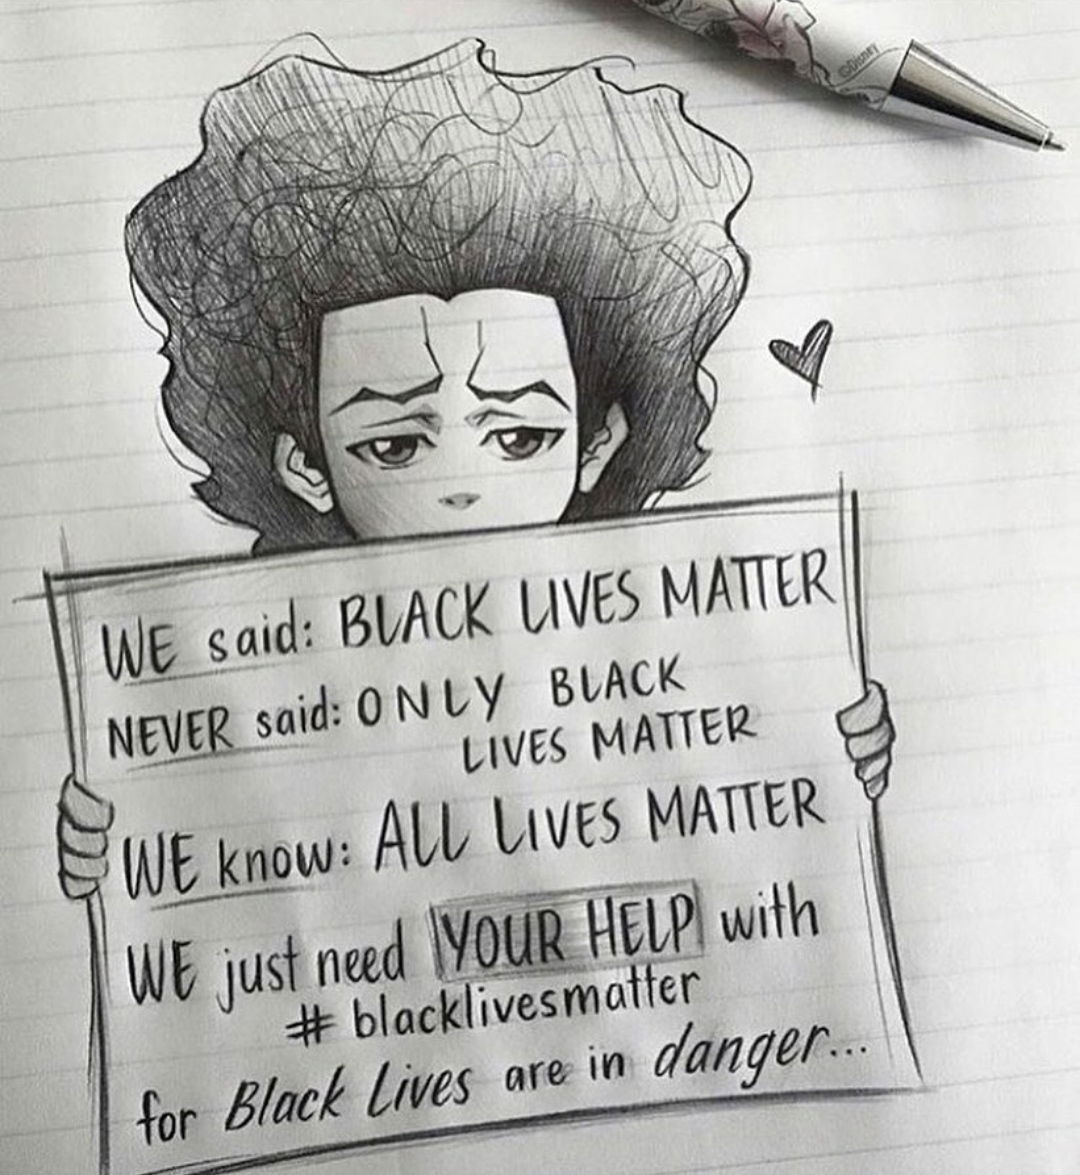 ©Disney
WE said: BLACK LIVES MATTER
NEVER said: ONLY BLACK
LIVES MATTER
WE know: ALL LIVES MATTER
WE just need YOUR HELP with
# blacklivesmatter
for Black Lives are in danger...